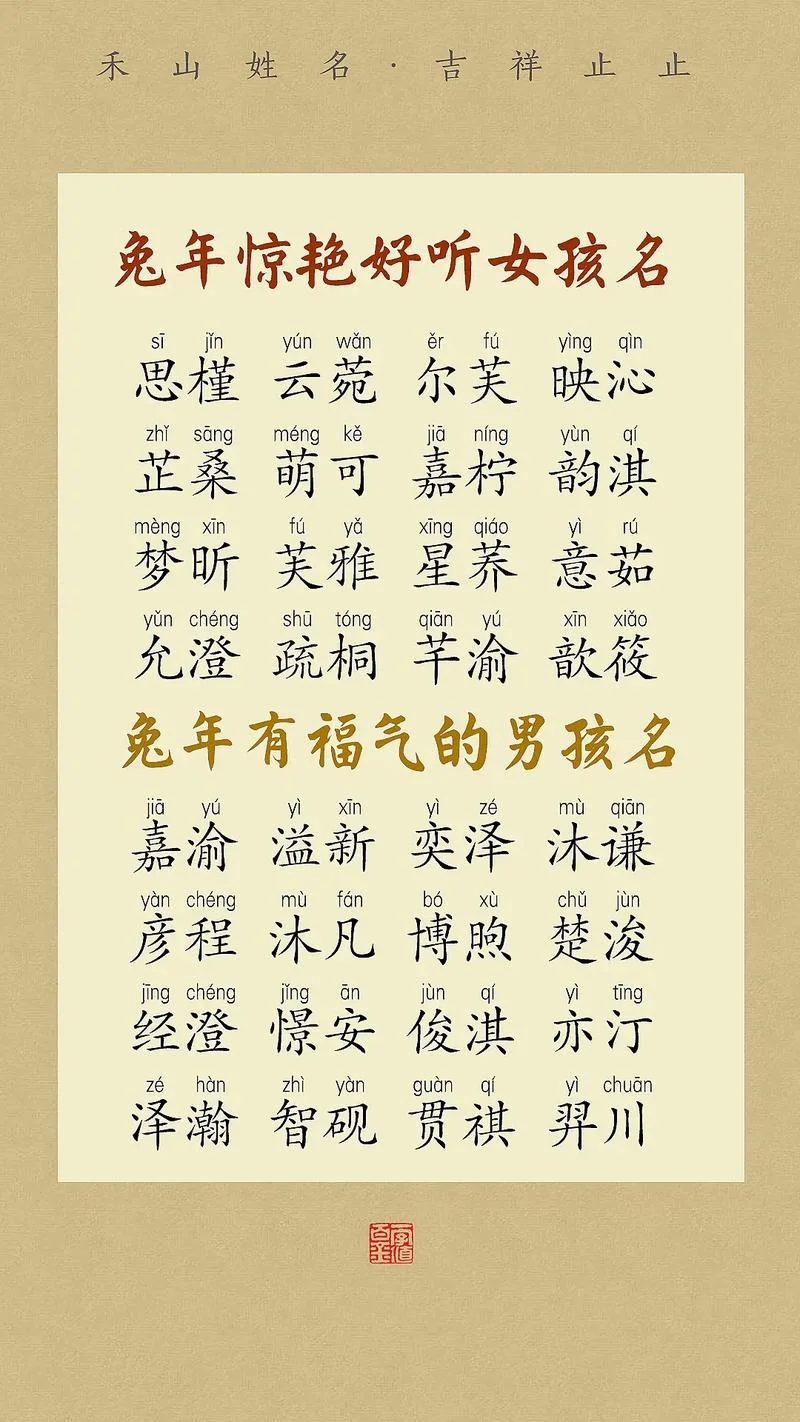 禾山姓名·吉祥止止
兔年惊艳好听女孩名
sī jǐn yún wǎn ěr fú yìng qìn
思槿 云菀 尔芙 映沁
zhǐ sāng méng kě jiā níng yùn qí
芷桑 萌可 嘉柠 韵淇
mèng xīn fú yǎ xīng qiáo yì rú
梦昕 芙雅 星荞 意茹
yǔn chéng shū tóng qiān yú xīn xiǎo
允澄 疏桐 芊渝 歆筱
兔年有福气的男孩名
jiā yú yì xīn yì zé mù qiān
嘉渝 溢新 奕泽 沐谦
yàn chéng mù fán bó xù chǔ jùn
彦程 沐凡 博煦 楚浚
jīng chéng jǐng ān jùn qí yì tīng
经澄 憬安 俊淇 亦汀
zé hàn zhì yàn guàn qí yì chuān
泽瀚 智砚 贯祺 羿川